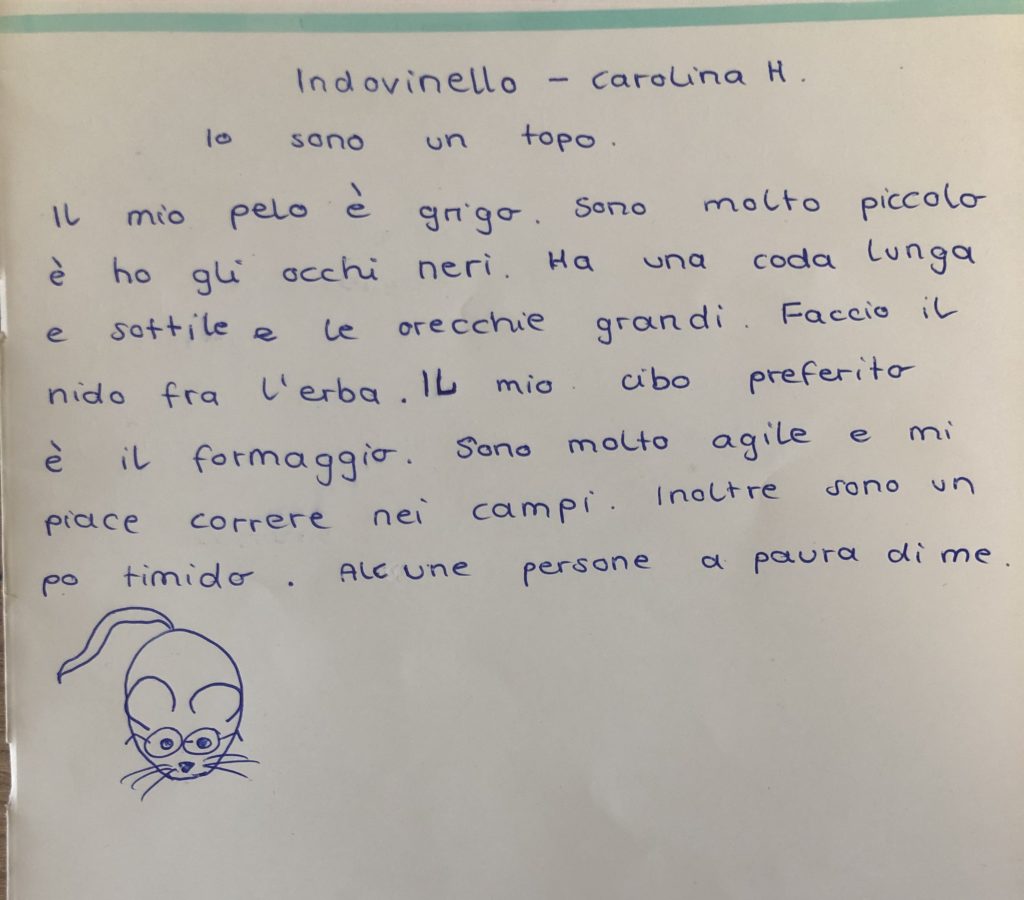 Indovinello - Carolina H.
Io sono un topo.
Il mio pelo è grigo. Sono molto piccolo
è ho gli occhi neri. Ha una coda lunga
e sottile e le orecchie grandi. Faccio il
nido fra l'erba. Il mio cibo preferito
è il formaggio. Sono molto agile e mi
piace correre nei campi. Inoltre sono un
po timido. Alcune persone a paura di me.